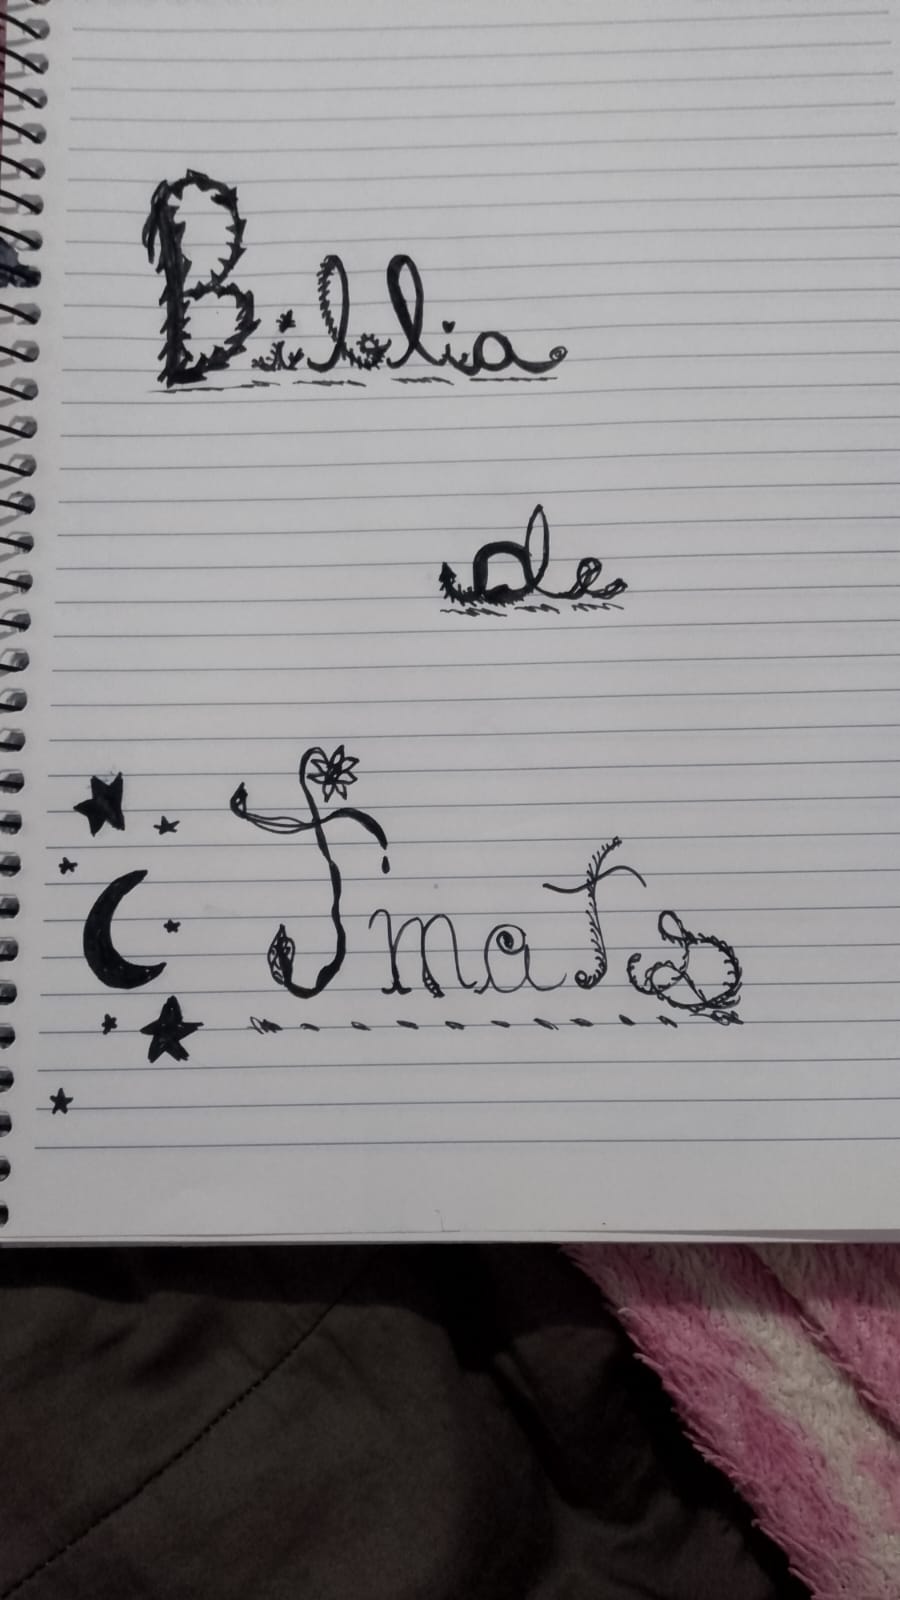 Biblia
de
Tmats